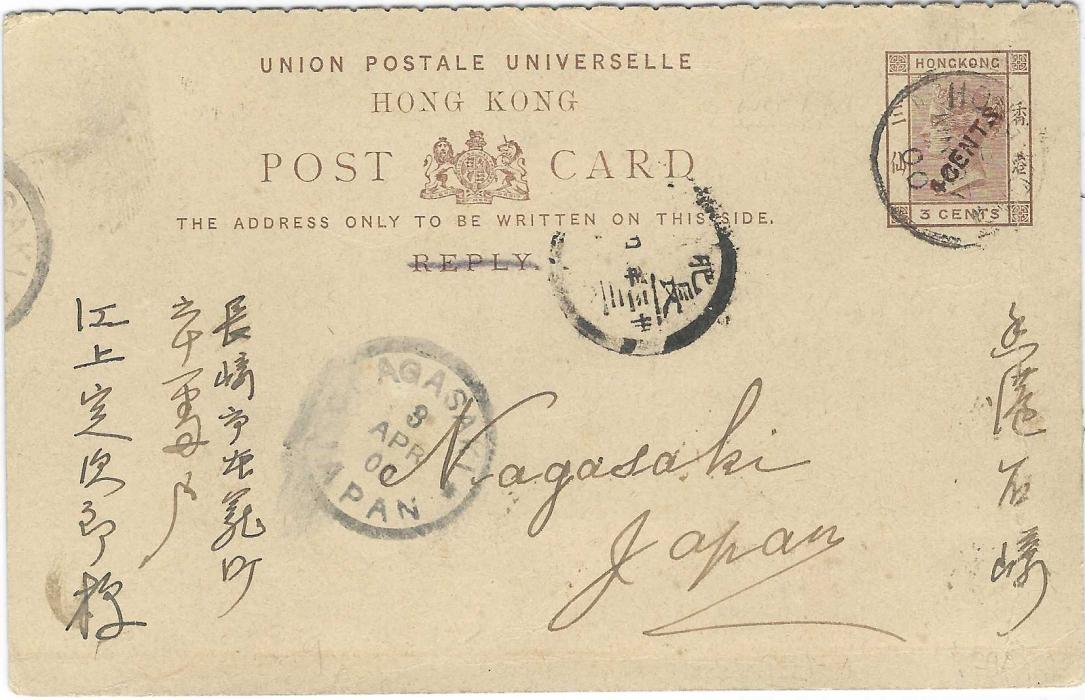 UNION POSTALE UNIVERSELLE
HONG KONG
POST CARD
THE ADDRESS ONLY TO BE WRITTEN ON THIS SIDE.
REPLY.
HONGKONG
香港
4 CENTS
3 CENTS
NAGASAKI
8
APR
00
JAPAN
Nagasaki
Japan
香港石崎
長崎市本籠町
江上定次郎様